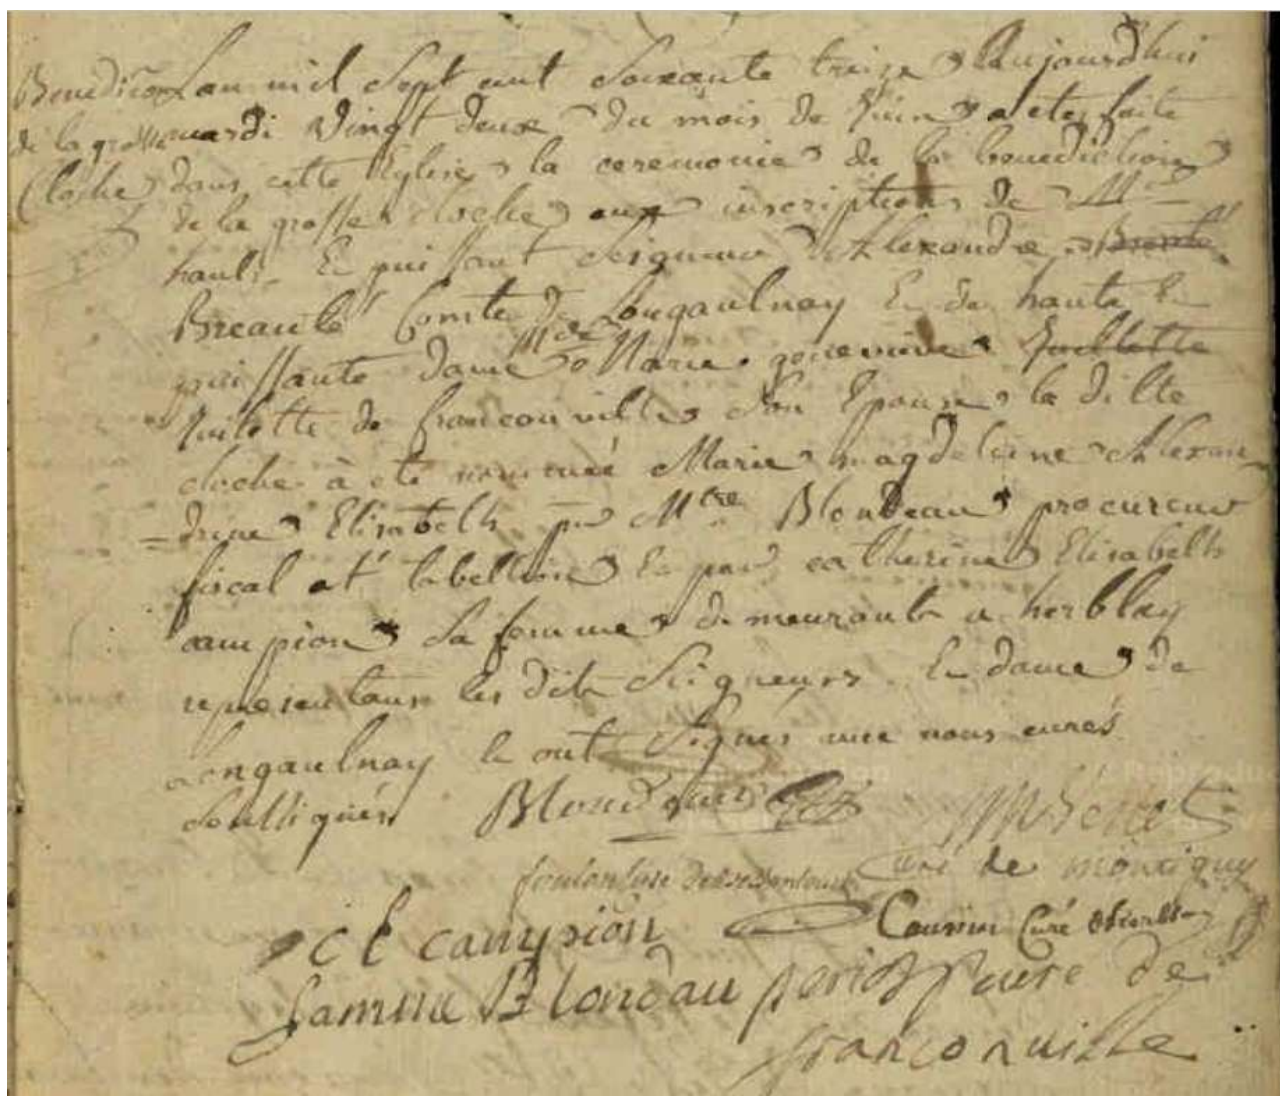 Benediction
de la grosse
Cloche
Lan mil Sept cent Soixante treize Aujourdhui
mardi vingt deux du mois de Juin a ete faite
dans cette Eglise la ceremonie de la benediction
de la grosse cloche aux inscriptions de
haut Et puissant Seigneur Alexandre
Breauté Comte de Longaulnay Et de haute Et
puissante dame Marie genevieve
Quilette de franconville Son Epouse la ditte
cloche à eté nommée Marie magdeleine Alexan
-drine Elisabeth par Mtre Blondeau procureur
fiscal et tabellion Et par catherine Elisabeth
campion Sa femme demeurants a herblay
representans les dits Seigneurs Et dame de
Longaulnay Et ont Signés avec nous curés
Soussignés Blondeau
curé de montigny
C E campion Cousin Curé
famme Blondau curé de
franconville